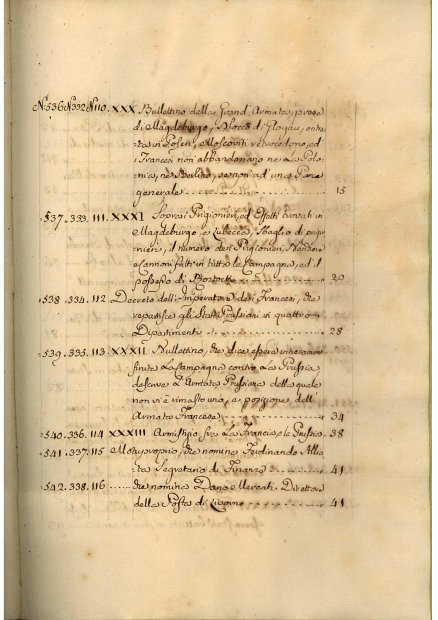 N.536 N332 N110. XXX Bullettino della Grand' Armata, presa
di Magdeburgo, Blocco di Glogau, entra
ta in Posen, Moscoviti retrocedono, ed
i Francesi non abbandonano nè La Polo
nia, nè Berlino, se non ad una Pace
generale 15
537. 333. 111. XXXI Sopra i Prigionieri, ed Effetti trovati in
Magdeburgo, e Lubecca, Sbaglio di prigi
onieri, il numero dei Prigionieri, Bandiere
e Cannoni fatti in tutta la Campagna, ed il
possesso di 20
538. 334. 112 Decreto dell' Imperatore dei Francesi, che
repartisce gli Stati Prussiani in quattro
Dipartimenti 28
539. 335. 113. XXXII Bullettino, che dice essere interamente
finita La Campagna contro La Prussia
descrive L'Armata Prussiana della quale
non vi è rimasto uno, e posizione dell'
Armata Francese 34
540. 336. 114 XXXIII Armistizio fra La Francia, e la Prussia 38
541. 337. 115 Motuproprio, che nomina Ferdinando
Segretario di Finanze 41
542. 338. 116 che nomina Direttore
della Posta di Livorno 41